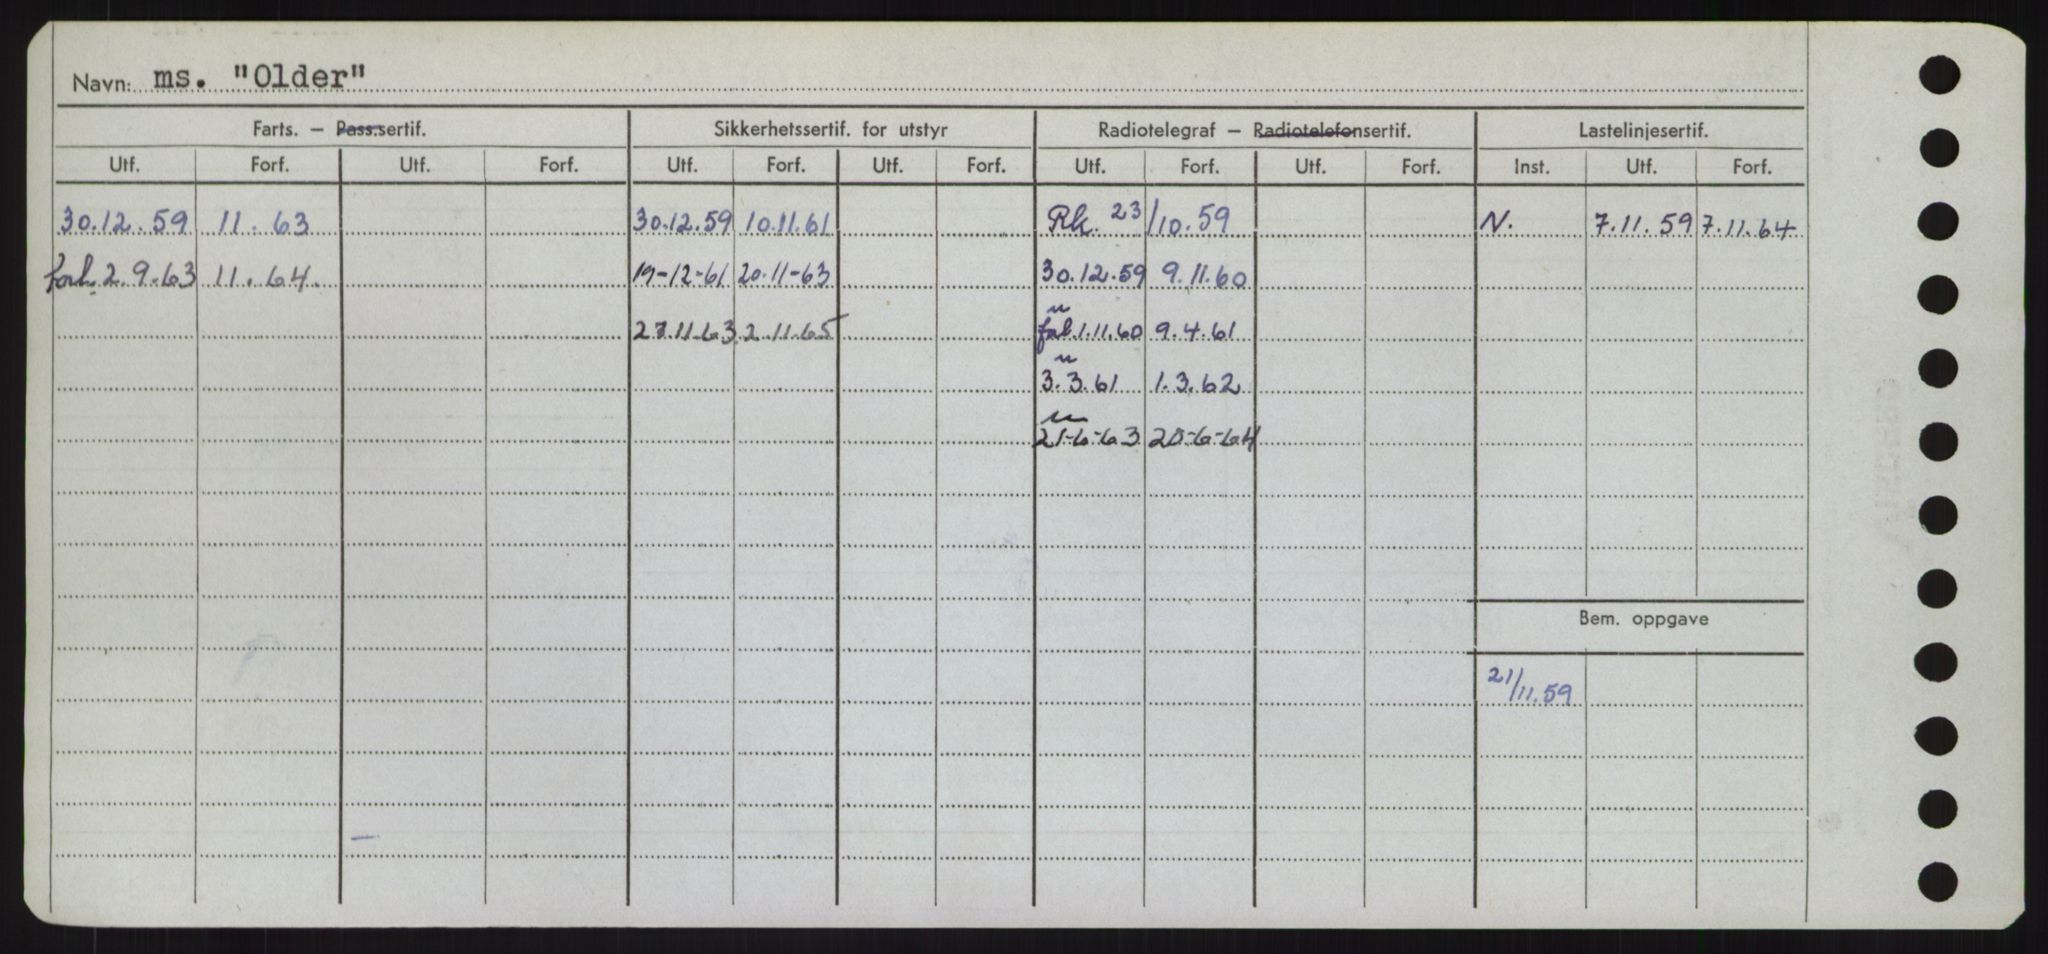 Navn: ms. "Older"
Farts. — Pass.sertif. Sikkerhetssertif. for utstyr Radiotelegraf — Radiotelefonsertif. Lastelinjesertif.
Utf. Forf. Utf. Forf. Utf. Forf. Utf. Forf. Utf. Forf. Utf. Forf. Inst. Utf. Forf.
30.12.59 11.63 30.12.59 10.11.61 Rk. 23/10.59 N. 7.11.59 7.11.64
forl. 2.9.63 11.64. 19-12-61 20-11-63 30.12.59 9.11.60
27.11.63 2.11.65 1.11.60 9.4.61
3.3.61 1.3.62
21-6-63 20-6-64
Bem. oppgave
21/11.59